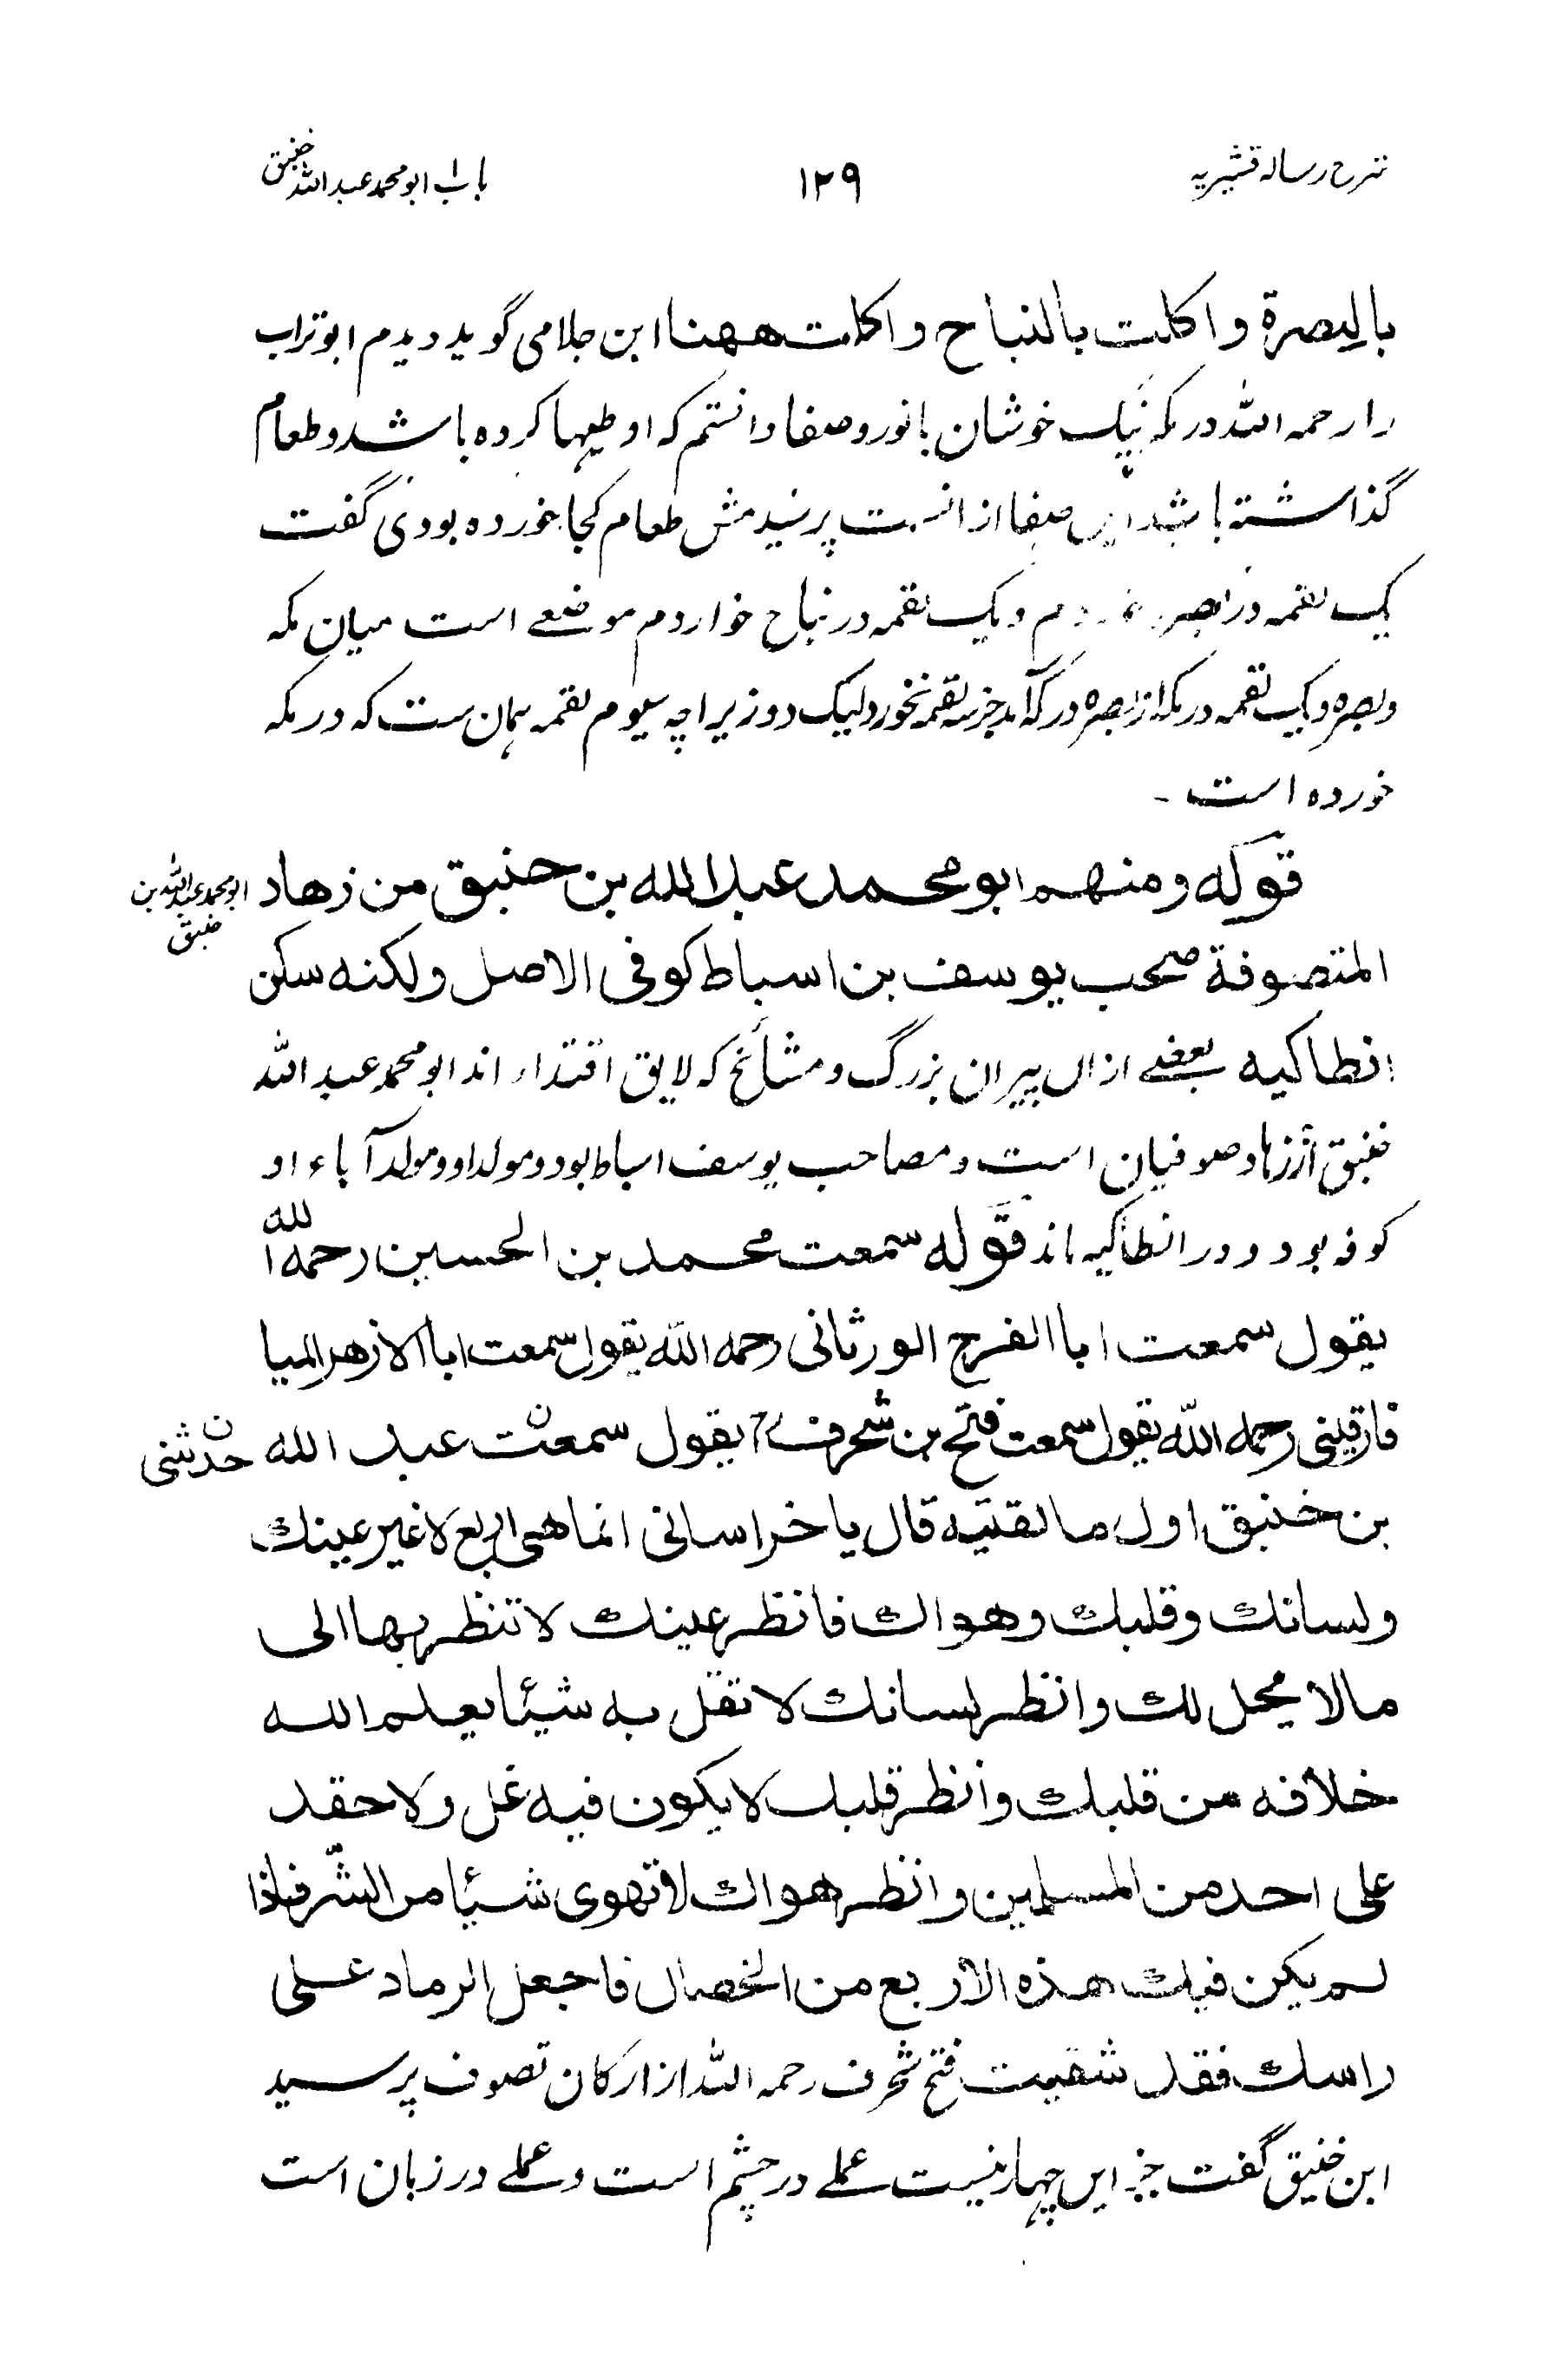 شرح رساله قشیریه
۱۲۹
باب ابو محمد عبد الله خنیق
بالبصرة و اکلت بالنباح و اکلت ههنا ابن جلا می گوید دیدم ابو تراب
را رحمه الله در مکه نیک خوشان با نور و صفا دانستم که او طیها کرده باشد و طعام
گذاشته باشد این صفا از انست پرسیدمش طعام کجا خورده بودی گفت
یک لقمه در بصره خوردم و یک لقمه در نباح خواردم موضعے است میان مکه
و بصره و یک لقمه در مکه از بصره در مکه آمد جز سه لقمه نخورد لیک دو زیرا چه سیوم لقمه همان ست که در مکه
خورده است -
قوله ومنهم ابو محمد عبد الله بن خنبق من زهاد
ابو محمد عبد الله بن
خنبق
المتصوفة صحب یوسف بن اسباط کوفی الاصل ولکنه سکن
انطاکیه بعضے ازاں پیران بزرگ و مشائخ که لایق اقتداء اند ابو محمد عبد الله
خنبق از زهاد صوفیان است و مصاحب یوسف اسباط بود و مولد او و مولد آباء او
کوفه بود و در انطاکیه ماند قوله سمعت محمد بن الحسین رحمه الله
یقول سمعت ابا الفرج الورثانی رحمه الله یقول سمعت ابا الازهر المیا
فارقینی رحمه الله یقول سمعت فتح بن شحرف رح یقول سمعت ن عبد الله
ن حدثنی
بن خنبق اول ما لقیته قال یا خراسانی انما هی اربع لا غیر عینك
ولسانك وقلبك وهواك فانظر عینك لا تنظر بها الی
مالا یحل لك وانظر لسانك لا تقل به شیئا یعلم الله
خلافه من قلبك وانظر قلبك لا یکون فیه غل ولا حقد
علی احد من المسلمین وانظر هواك لا تهوی شیئا من الشر فاذا
لم یکن فیك هذه الاربع من الخصال فاجعل الرماد علی
راسك فقد شقیت فتح شحرف رحمه الله از ارکان تصوف پرسید
ابن خنیق گفت جز ایں چهار نیست عملے در چشم است و عملے در زبان است